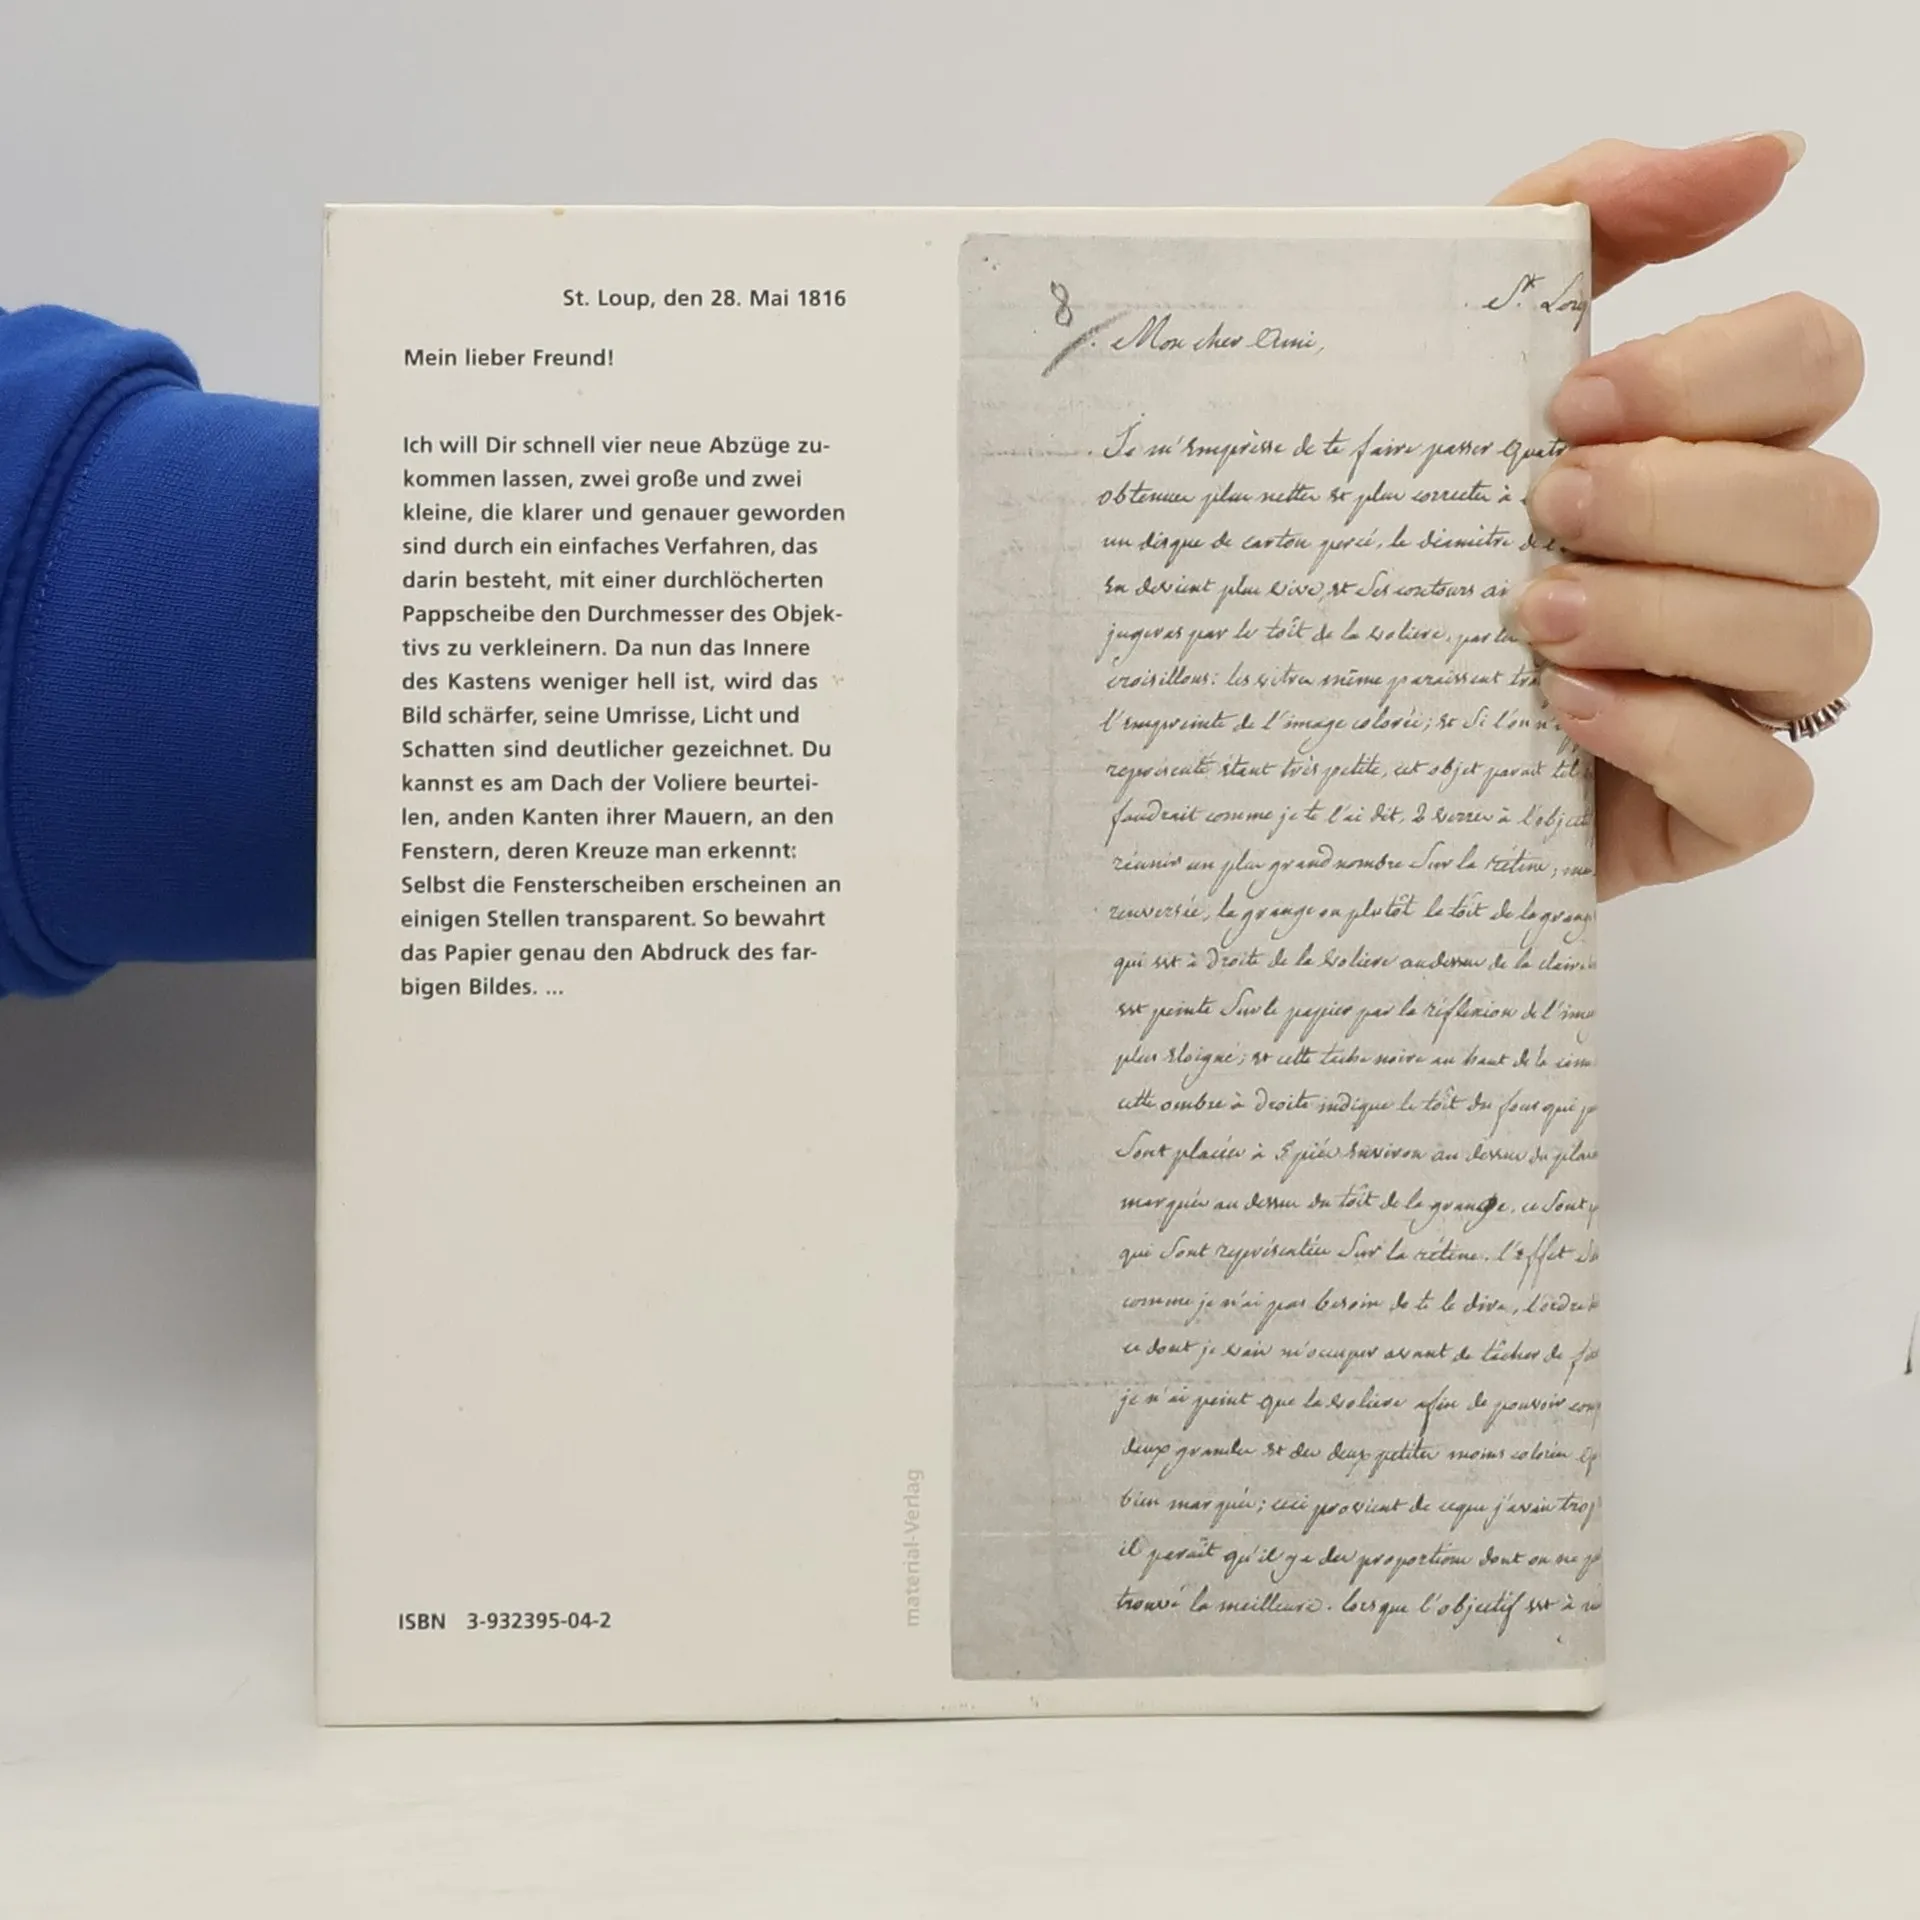 St. Loup, den 28. Mai 1816
Mein lieber Freund!
Ich will Dir schnell vier neue Abzüge zu-
kommen lassen, zwei große und zwei
kleine, die klarer und genauer geworden
sind durch ein einfaches Verfahren, das
darin besteht, mit einer durchlöcherten
Pappscheibe den Durchmesser des Objek-
tivs zu verkleinern. Da nun das Innere
des Kastens weniger hell ist, wird das
Bild schärfer, seine Umrisse, Licht und
Schatten sind deutlicher gezeichnet. Du
kannst es am Dach der Voliere beurtei-
len, anden Kanten ihrer Mauern, an den
Fenstern, deren Kreuze man erkennt:
Selbst die Fensterscheiben erscheinen an
einigen Stellen transparent. So bewahrt
das Papier genau den Abdruck des far-
bigen Bildes. ...
ISBN 3-932395-04-2
material-Verlag
8
St. Lou
Mon cher Ami,
Je m'empresse de te faire passer quatr
obtenues plus nettes et plus correctes à
un disque de carton percé, le diamètre de l
en devient plus vive, et ses contours ai
jugeras par le toît de la voliere, par les
croisillons: les vitres même paraissent
l'empreinte de l'image colorée; et si l'on n'
représenté étant très petite, cet objet parait tel
faudrait comme je te l'ai dit, 2 verres à l'objectif
réunir un plus grand nombre sur la rétine;
renversée, la grange ou plutôt le toît de la grang
qui est à droite de la voliere
est peinte sur le papier par la réflexion de l'ima
plus éloigné; et cette tache noire au haut de la
cette ombre à droite indique le toît du four qui
sont placées à 5 piés environ au dessus du
marquée au dessus du toît de la grange, ce sont
qui sont représentées sur la rétine. l'effet
comme je n'ai pas besoin de te le dire, l'ordre
ce dont je vais m'occuper avant de tâcher de
je n'ai peint que la voliere afin de pouvoir
deux grandes et des deux petites moins colorées
bien marquée; ceci provient de ceque j'avais trop
il parait qu'il y a des proportions dont on ne
trouvé la meilleure. lorsque l'objectif est à